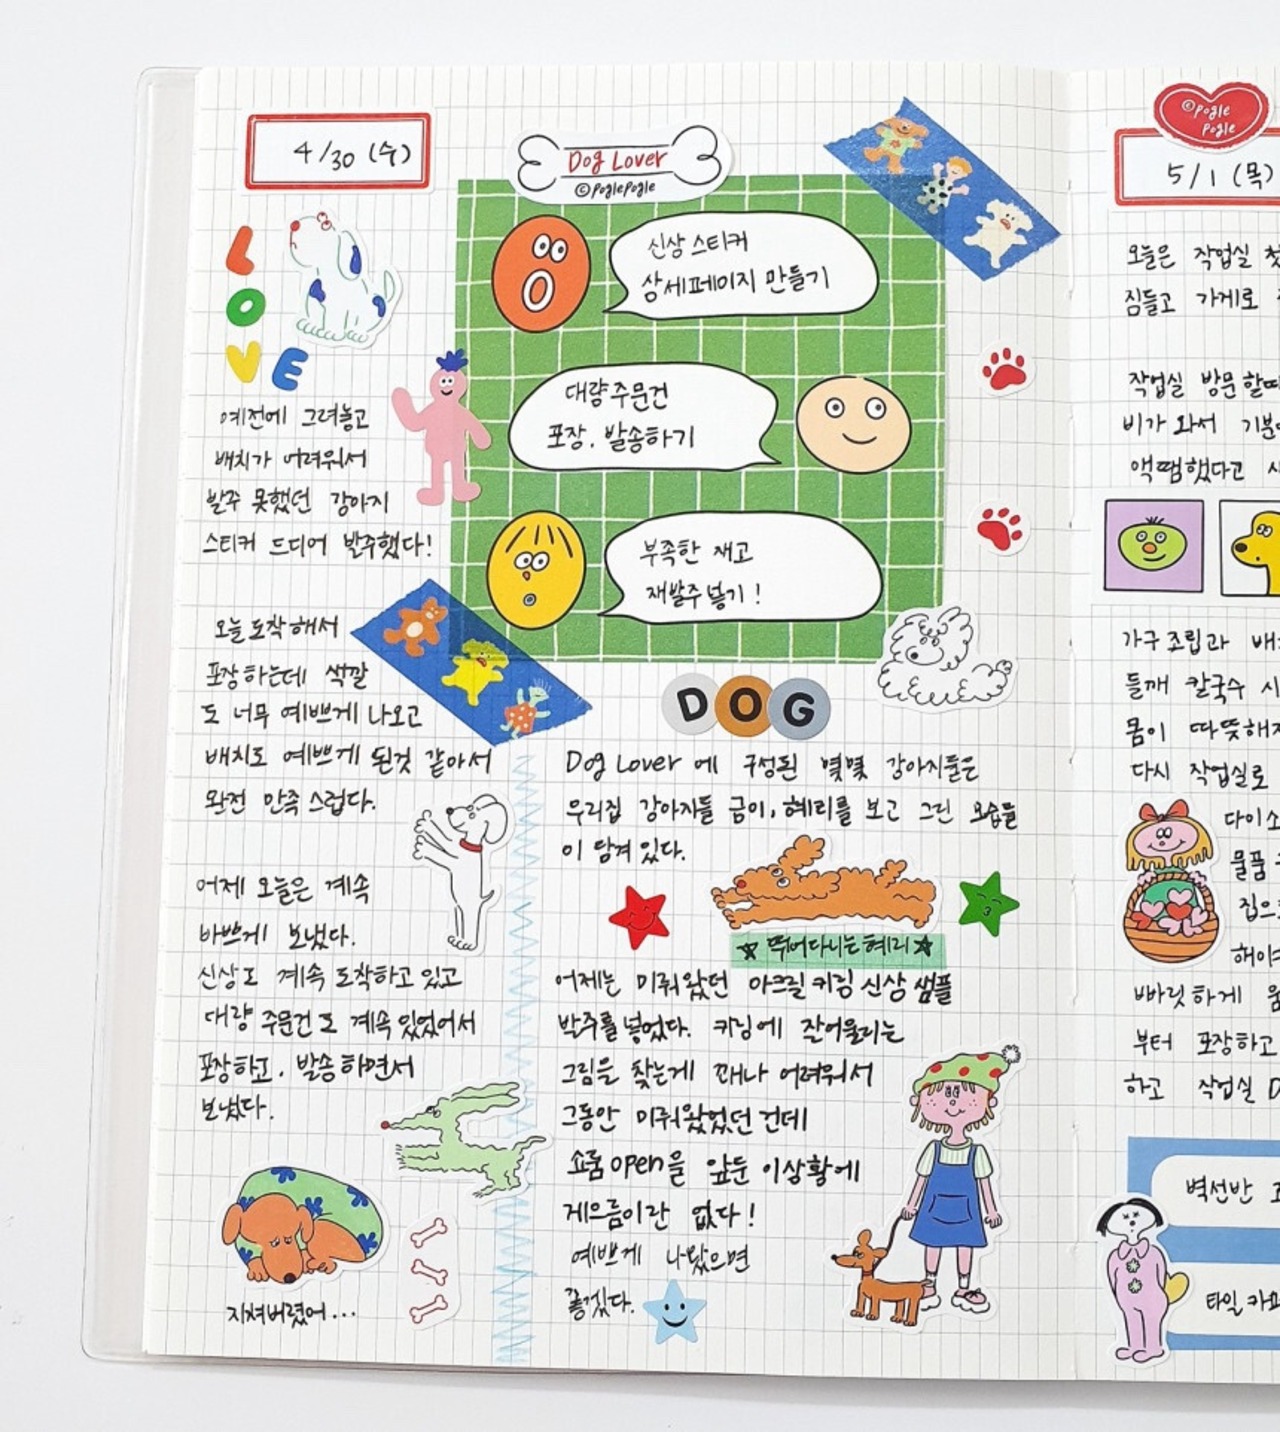 4/30 (수)
Dog Lover
©poglepogle
LOVE
신상 스티커
상세페이지 만들기
대량 주문건
포장, 발송하기
부족한 재고
재발주 넣기!
예전에 그려놓고
배치가 어려워서
발주 못했던 강아지
스티커 드디어 발주했다!
오늘 도착해서
포장하는데 색깔
도 너무 예쁘게 나오고
배치도 예쁘게 된것 같아서
완전 만족스럽다.
어제 오늘은 계속
바쁘게 보냈다.
신상도 계속 도착하고 있고
대량 주문건도 계속 있었어서
포장하고, 발송하면서
보냈다.
지쳐버렸어...
DOG
Dog Lover 에 구성된 몇몇 강아지들은
우리집 강아지들 금이, 혜리를 보고 그린 모습들
이 담겨있다.
☆ 뛰어다니는 혜리 ☆
어제는 미뤄왔던 아크릴 키링 신상 샘플
발주를 넣었다. 키링에 잘어울리는
그림을 찾는게 꽤나 어려워서
그동안 미뤄왔었던 건데
쇼룸 open을 앞둔 이상황에
게으름이란 없다!
예쁘게 나왔으면
좋겠다.
©pogle
pogle
5/1 (목)
오늘은 작업실
짐들고 가게로
작업실 방문할때
비가 와서
액땜했다고
가구 조립과
들깨 칼국수
몸이 따뜻해
다시 작업실로
다이소
물품
집으로
빠릿하게
부터 포장하고
하고 작업실
벽선반
타일 카페